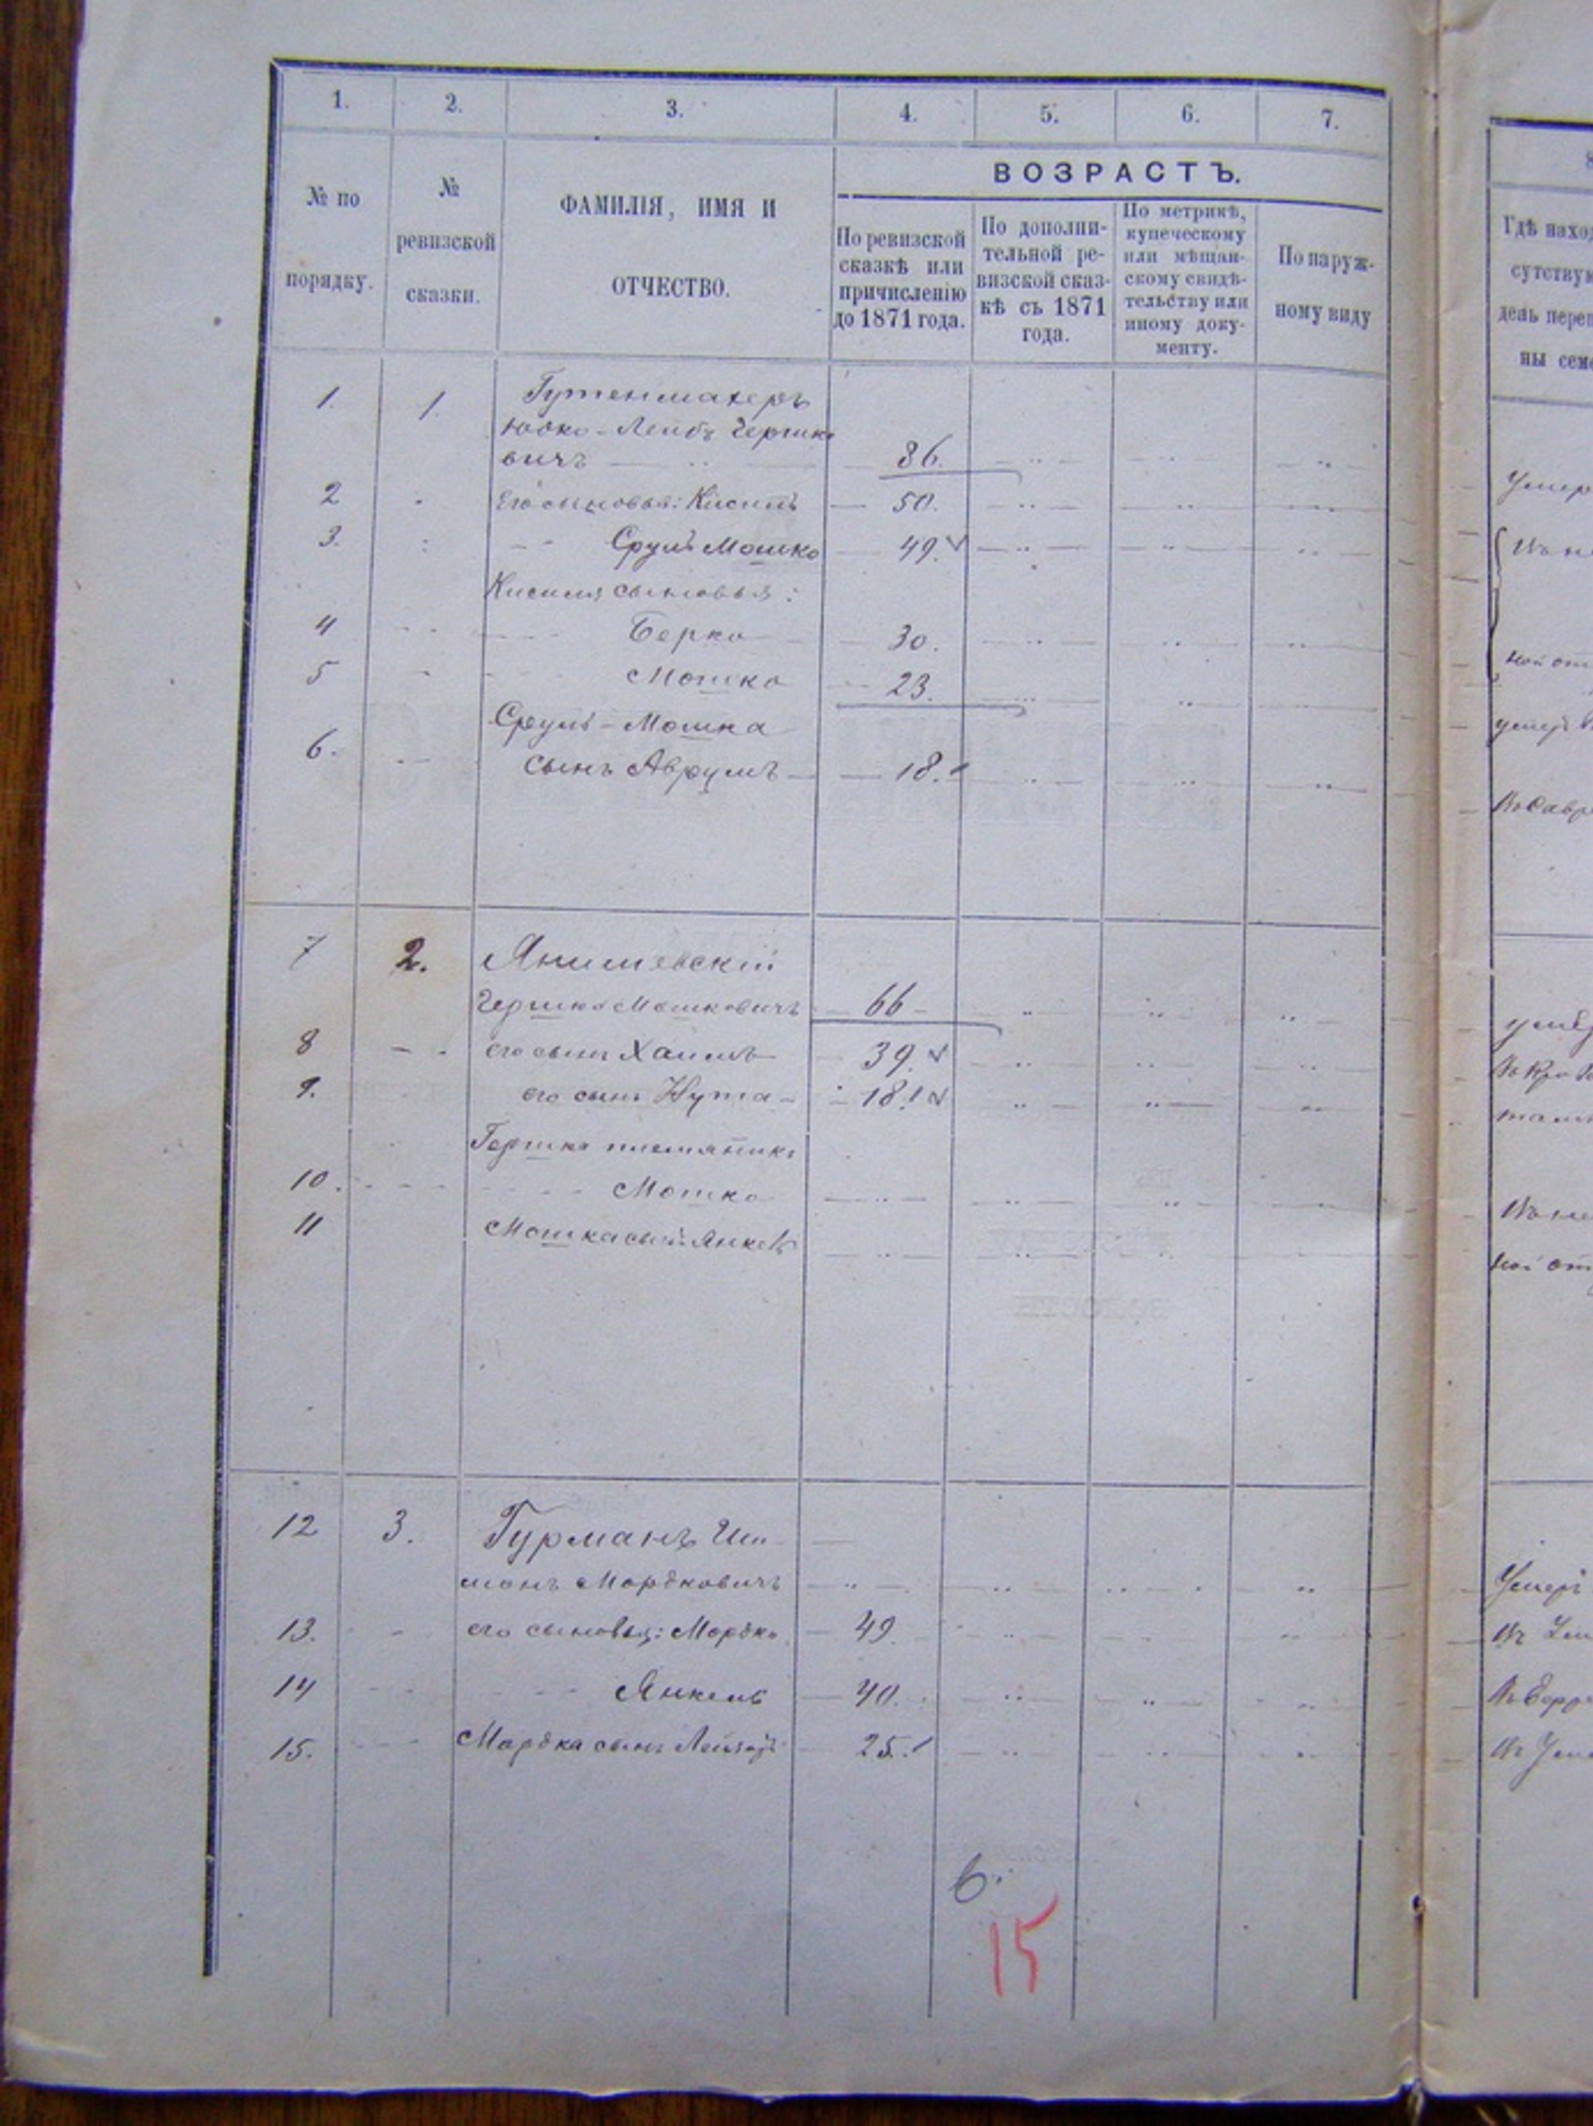 1. 2. 3. 4. 5. 6. 7.
№ по порядку.
№ ревизской сказки.
ФАМИЛІЯ, ИМЯ И ОТЧЕСТВО.
ВОЗРАСТЪ.
По ревизской сказкѣ или причисленію до 1871 года.
По дополнительной ревизской сказкѣ съ 1871 года.
По метрикѣ, купеческому или мѣщанскому свидѣтельству или иному документу.
По наружному виду
1. 1. Гутенмахеръ
Юдко-Лейбъ Гершко
вичъ 86.
2 Его сыновья: Кисиль 50.
3. Сруль Мошко 49.
Кисиля сыновья:
4 Берко 30.
5 Мошко 23.
Сруль-Мошка
6. сынъ Аврумъ 18.
7 2. Янишевскій
Гершко Мошковичъ 66
8 его сынъ Хаимъ 39.
9. его сынъ Нута 18.
Гершка племянникъ
10. Мошко
11 Мошка сынъ Янкель
12 3. Гурманъ
Мордковичъ
13. его сыновья: Мордко 49
14 Янкель 40.
15. Мордка сынъ 25.
6.
15
Гдѣ наход
сутствую
день переп
ны сем